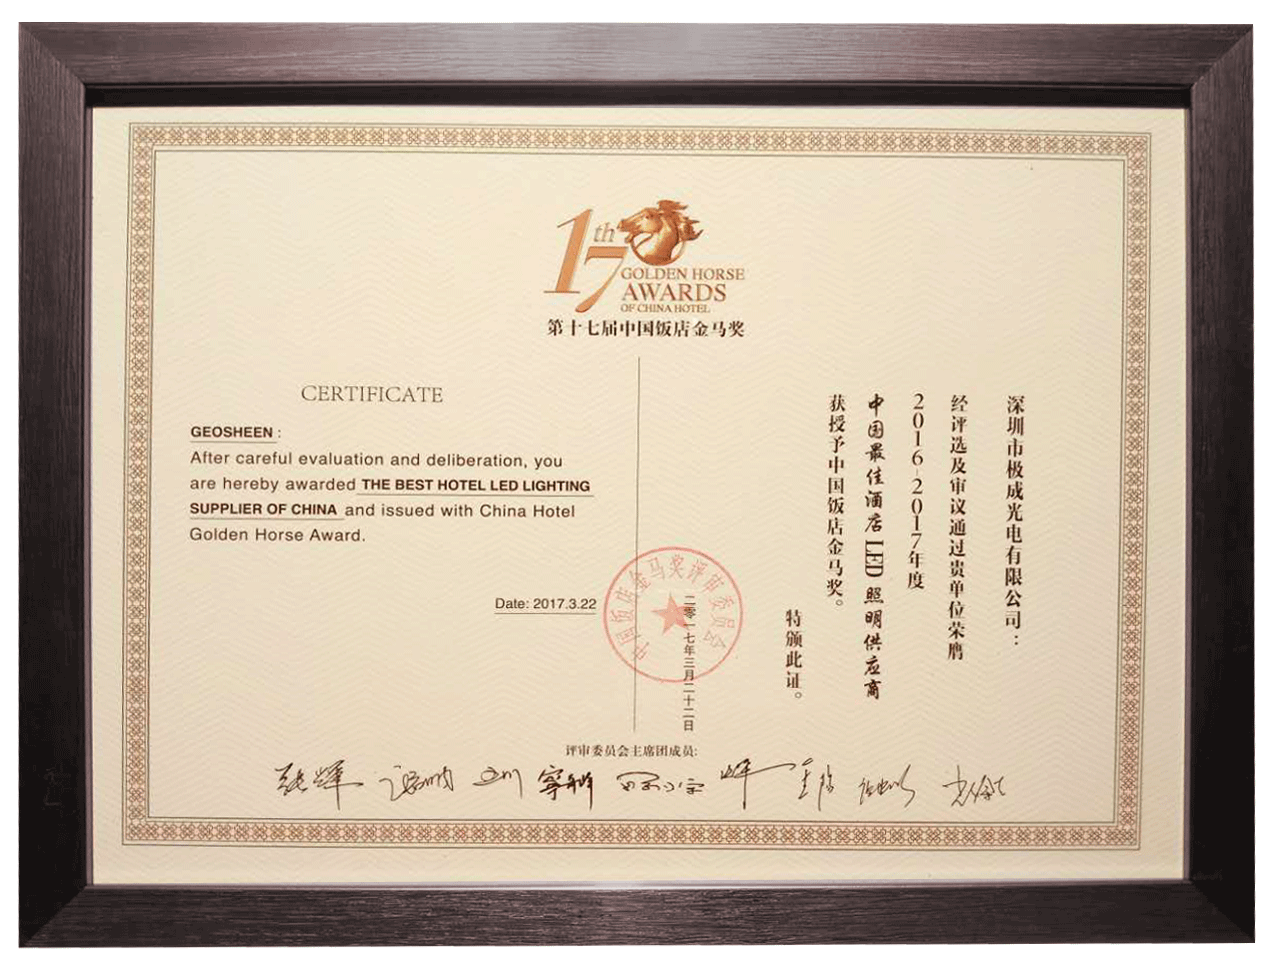 17th
GOLDEN HORSE
AWARDS
OF CHINA HOTEL
第十七届中国饭店金马奖
CERTIFICATE
GEOSHEEN :
After careful evaluation and deliberation, you
are hereby awarded THE BEST HOTEL LED LIGHTING
SUPPLIER OF CHINA and issued with China Hotel
Golden Horse Award.
Date: 2017.3.22
深圳市极成光电有限公司：
经评选及审议通过贵单位荣膺
2016-2017年度
中国最佳酒店LED照明供应商
获授予中国饭店金马奖。
特颁此证。
中国饭店金马奖评审委员会
二零一七年三月二十二日
评审委员会主席团成员: